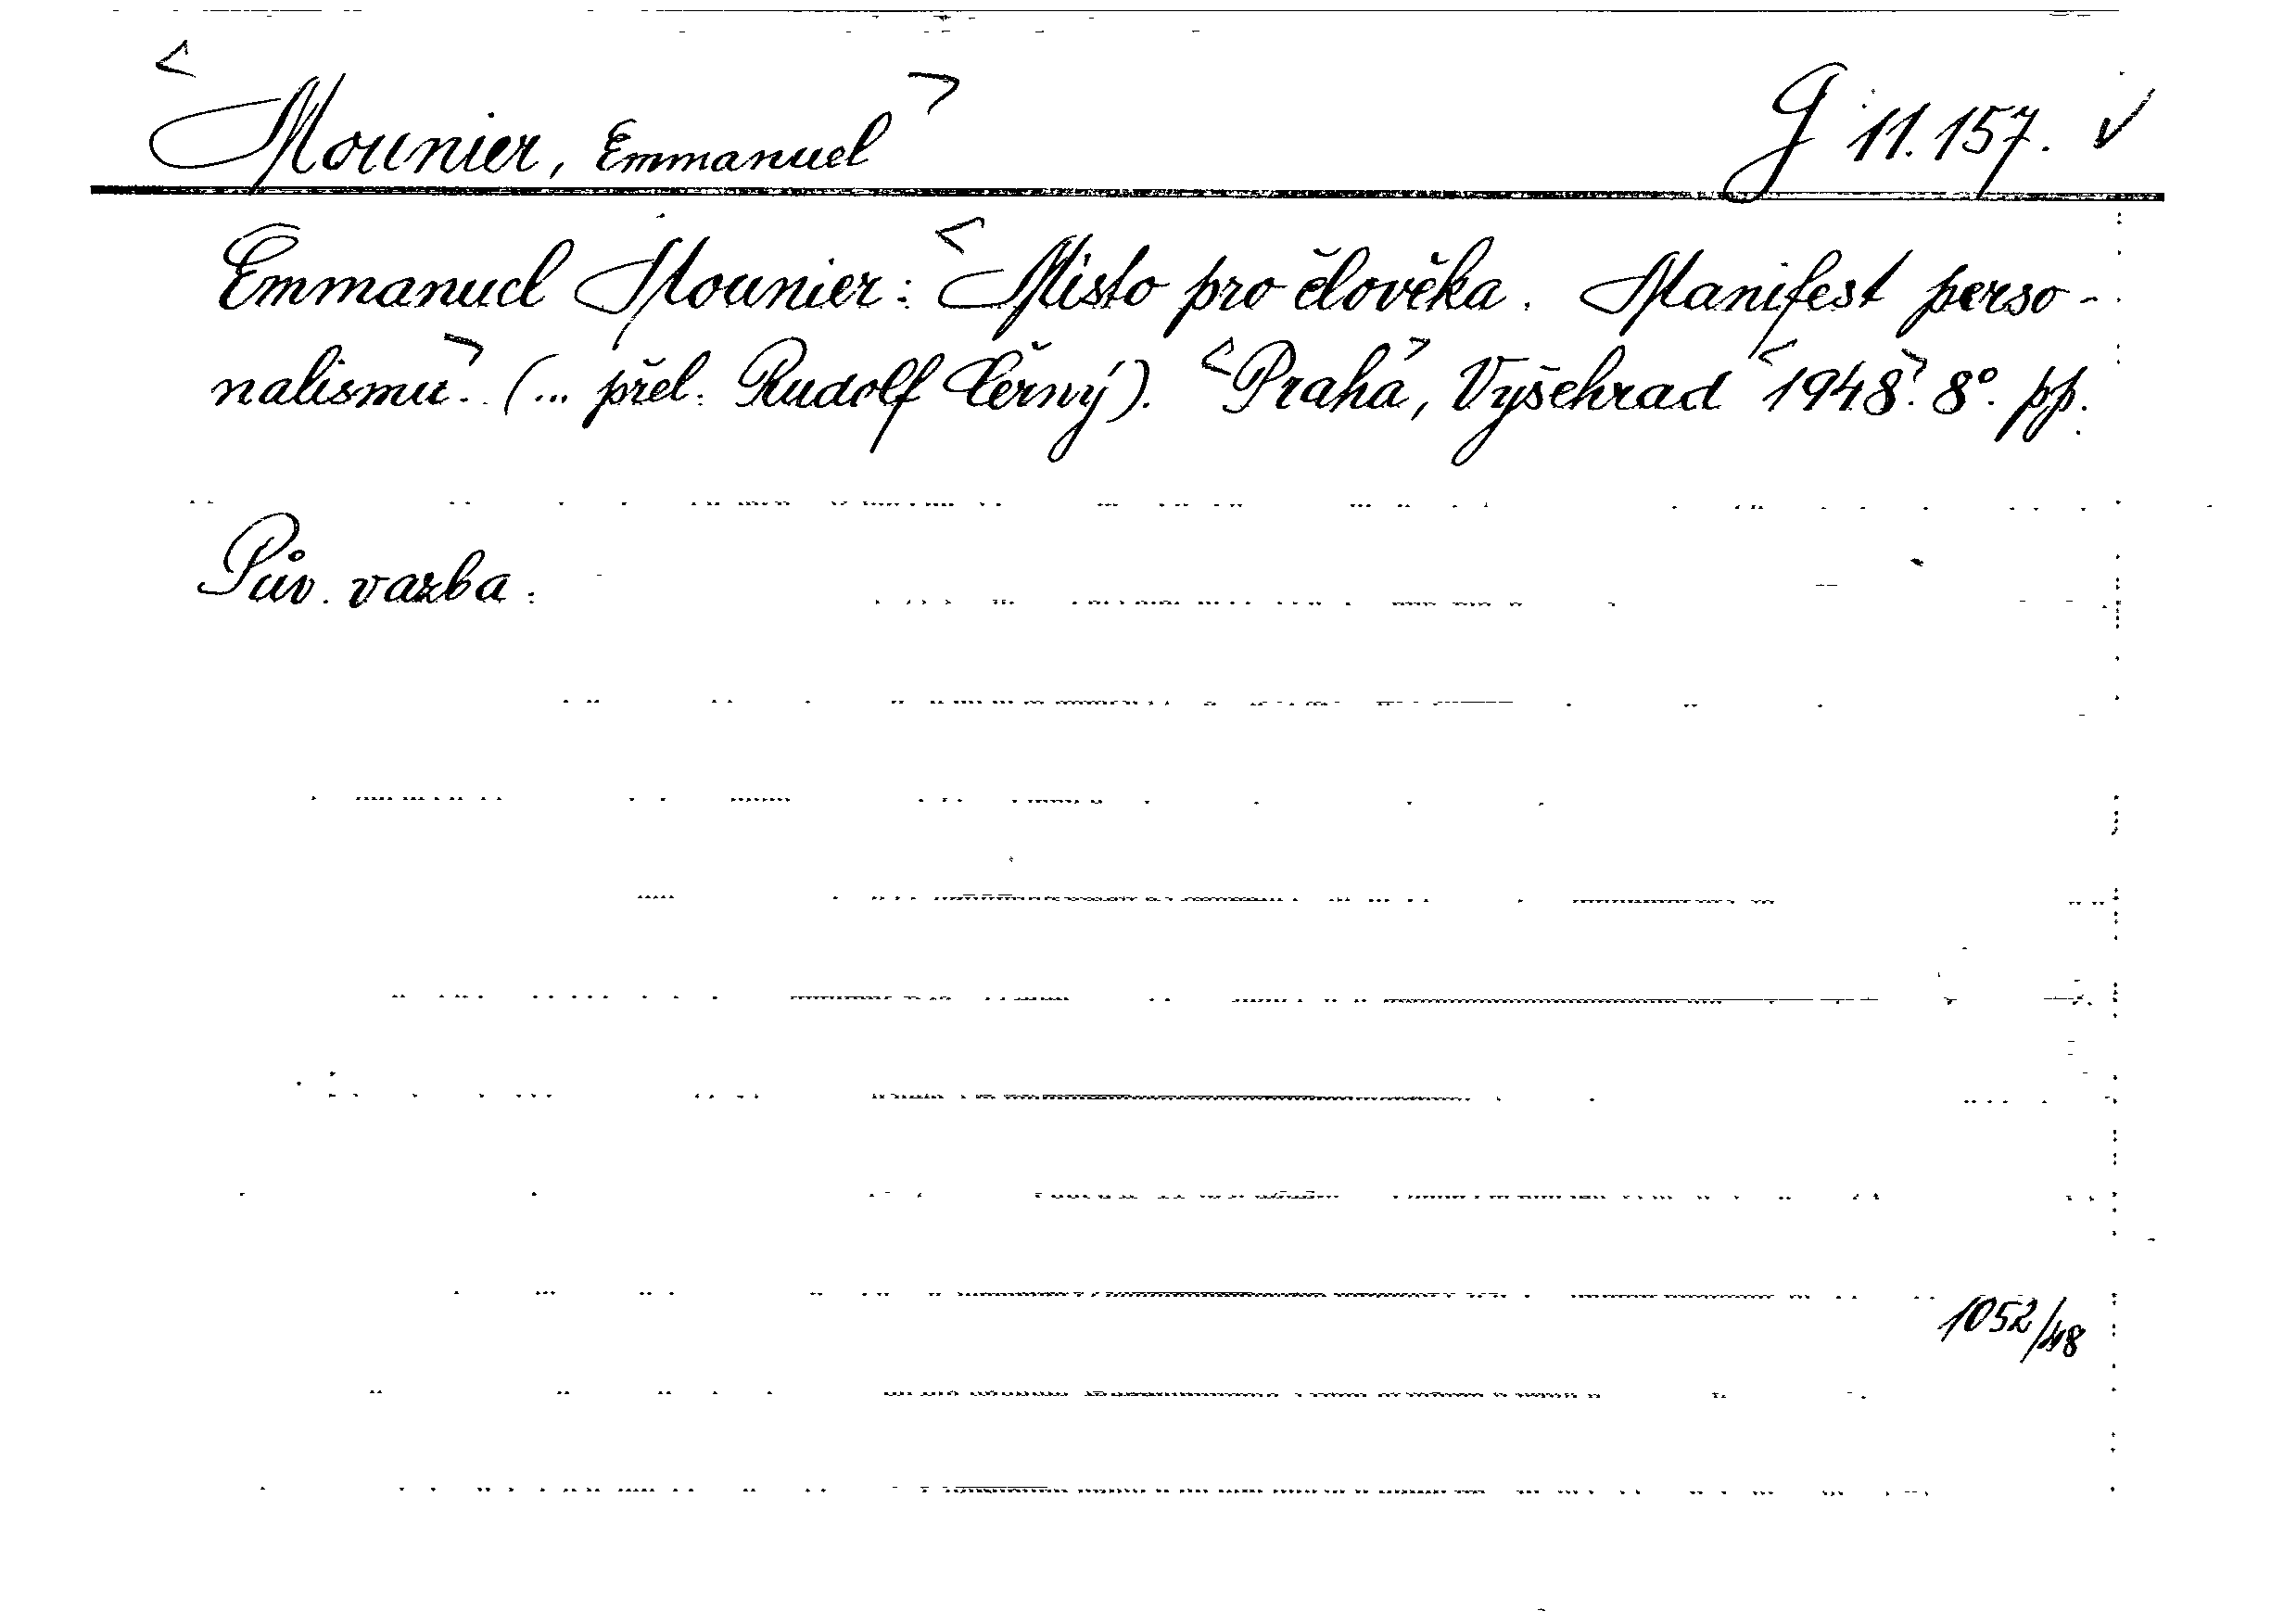 <Mounier, Emmanuel> G 11.157. ✓
Emmanuel Mounier: <Místo pro člověka. Manifest perso-
nalismu>. (... přel. Rudolf Černý). <Praha>, Vyšehrad <1948>. 8°. pp.
Pův. vazba.
1052/48